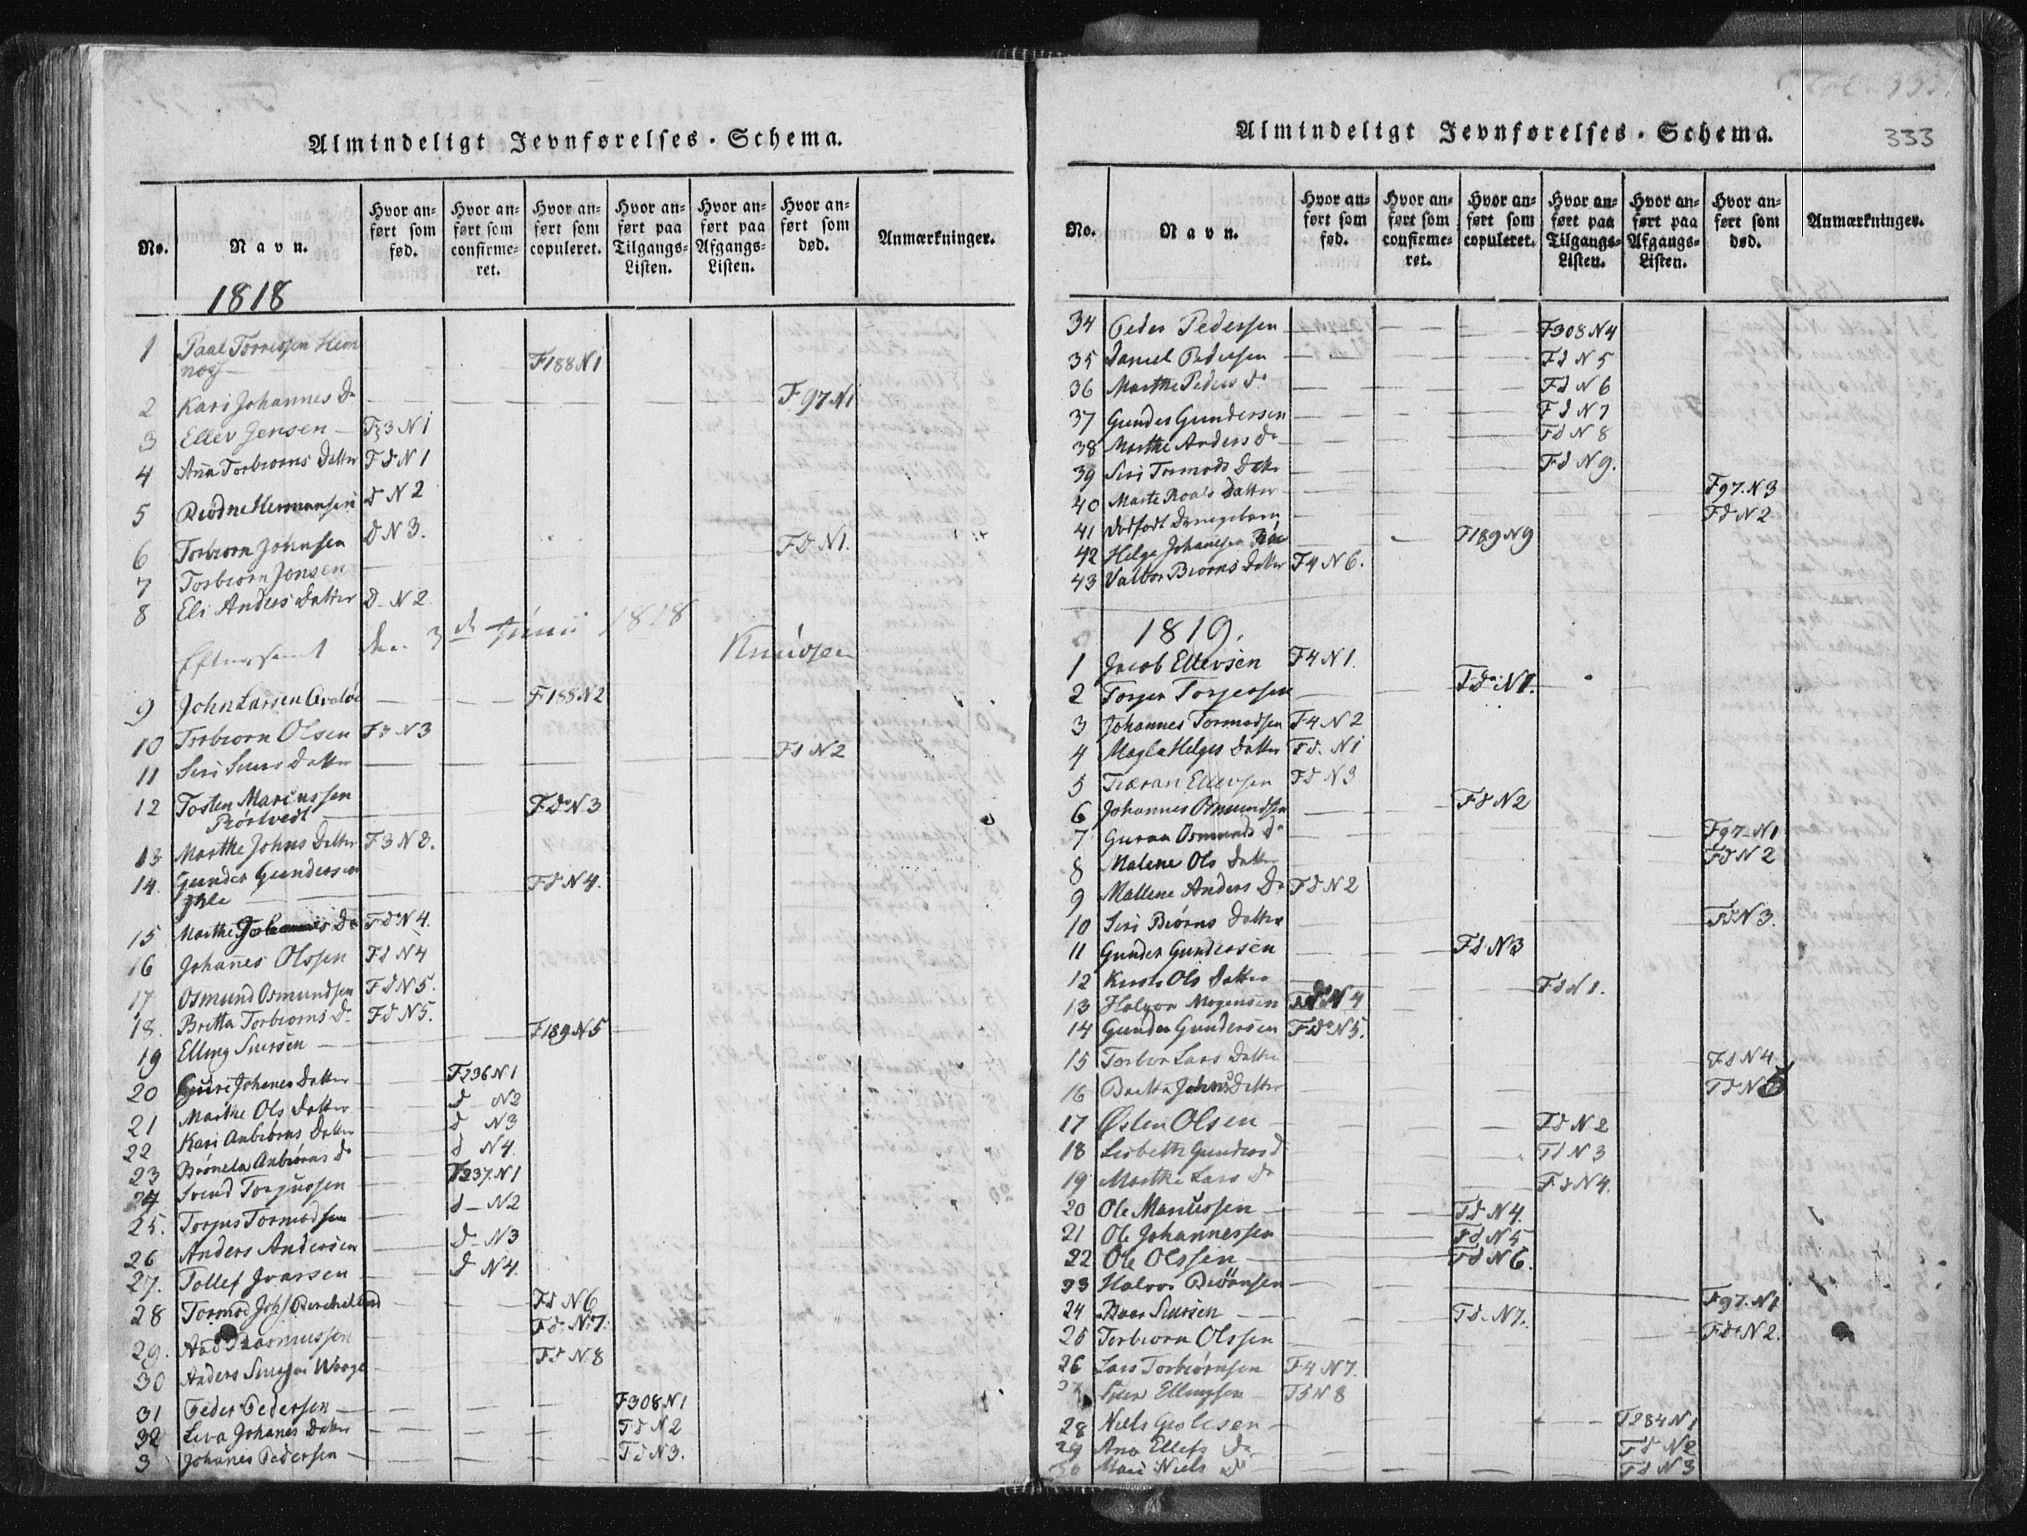 Almindeligt Jevnførelses-Schema.
No. Navn. Hvor anført som fød. Hvor anført som confirmeret. Hvor anført som copuleret. Hvor anført paa Tilgangs-Listen. Hvor anført paa Afgangs-Listen. Hvor anført som død. Anmærkninger.
1818
1 Paal Torressen Hem
nog F188 N1
2 Kari Johannes Dr F 97 N1
3 Ellev Jensen F 3 N1
4 Ana Torbiorns Datter F D N1
5 Biodne Hermansen D N2
6 Torbiorn Johnsen D N3.
7 Torbiorn Jonsen F D N1.
8 Eli Anders Datter D- N2
Efterseet den 3de Junii 1818 Knudsen
9 John Larsen F188 N2
10 Torbiorn Olsen F3 N3
11 Siri Siurs Datter Fd N2
12 Tosten Marcussen
Rørtvedt F D N3
13 Marthe Johns Datter F3 N3.
14. Gunder Gundersen
F d N4.
15 Marthe Johannis Dr F D N4.
16 Johanes Olssen F d N4
17 Osmund Osmundsen F d N5.
18. Britta Torbiorns Dr F d N5.
19 Elling Siursen F189 N5
20 Guri Johanes Datter F236 N1
21 Marthe Ols Datter d N2
22 Kari Anbiørns Datter d N3
23 Brønela Anbiørns Dr d N4.
24 Svend Torjussen F237. N1
25. Torjus Tormodsen d- N2
26 Anders Andersen d- N3
27. Tollef Ivarsen d N4
28 Tormod Johs Berckeland F d N6
29. Aad Rasmussen F d N7
30 Anders Siursen Waage F d N8
31 Peder Pedersen F308 N1
32 Liva Johanes Datter F d N2
3 Johanes Pedersen F d N3.
333
Almindeligt Jevnførelses-Schema.
No. Navn. Hvor anført som fød. Hvor anført som confirmeret. Hvor anført som copuleret. Hvor anført paa Tilgangs-Listen. Hvor anført paa Afgangs-Listen. Hvor anført som død. Anmærkninger.
34 Peder Pedersen F308 N4
35 Daniel Pedersen F d N5
36 Marthe Peders Dr F d N6
37 Gunder Gundersen F d N7
38 Marthe Anders Dr F d N8
39 Siri Tormods Datter F d N9.
40 Marte Roals Datter F97. N3
41 Dødfødt Drengebarn F d N2
42 Helge Johanssen F189 N9
43 Valbor Biorns Datter F4 N6.
1819.
1 Jacob Ellevsen F4 N1.
2 Torger Torgersen F D N1.
3 Johannes Tormodsen F4 N2
4 Magla Helges Datter F d. N1
5 Tiøran Ellevsen F d N3
6 Johannes Osmundsen F d N2
7 Guroa Osmunds Dr F97- N1
8 Malene Ols Datter F d N2
9 Mallene Anders Dr F d N2
10 Siri Biørns Datter F d N3.
11 Gunder Gundersen F d N3
12 Kirsti Ols Datter F d N1.
13 Halvor Mogensen F d N4
14 Gunder Gundersen F D N5.
15 Torbor Lars Datter F d N4
16 Berta Johns Datter F d N
17 Østen Olsen F d N2
18 Lisbeth Gunders d F d N3
19 Marthe Lars Dr F d N4.
20 Ole Marcussen F d N4.
21 Ole Johannessen F d N5
22 Ole Olssen F d N6.
23 Halvor Biørnsen F97. N1
24 Siursen F d- N7.
25 Torbiorn Olssen F d N2.
26 Lars Torbiørnsen F4 N7.
Ellingsen F5 N8
28 Niels F284 N1
29 Ana Ellefs Dr F d N2
Mari Niels Dr F d N3